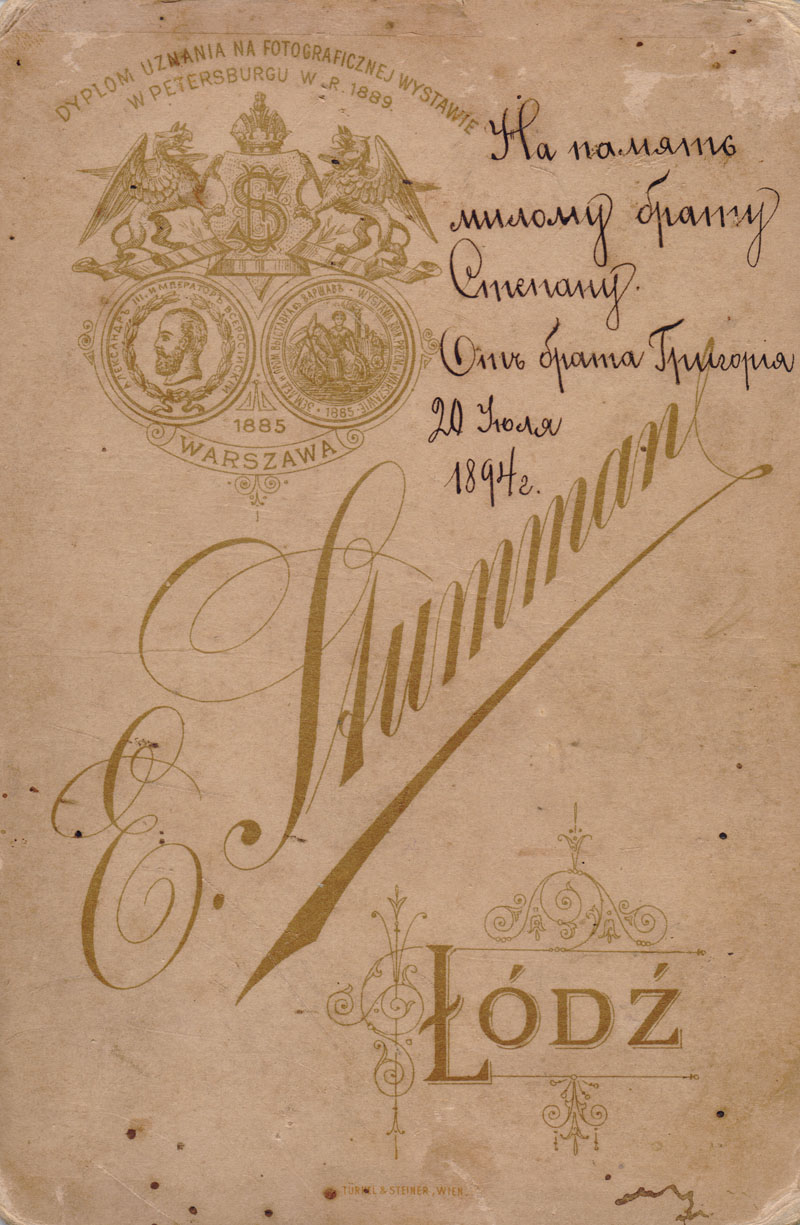 DYPLOM UZNANIA NA FOTOGRAFICZNEJ WYSTAWIE
W PETERSBURGU W R. 1889
На память
милому брату
Степану.
Отъ брата Григорія
20 Іюля
1894 г.
АЛЕКСАНДРЪ III. ИМПЕРАТОРЪ ВСЕРОССІЙСКІЙ
1885
1885
WARSZAWA
E. Stumman
ŁÓDŹ
TÜRKEL & STEINER, WIEN.